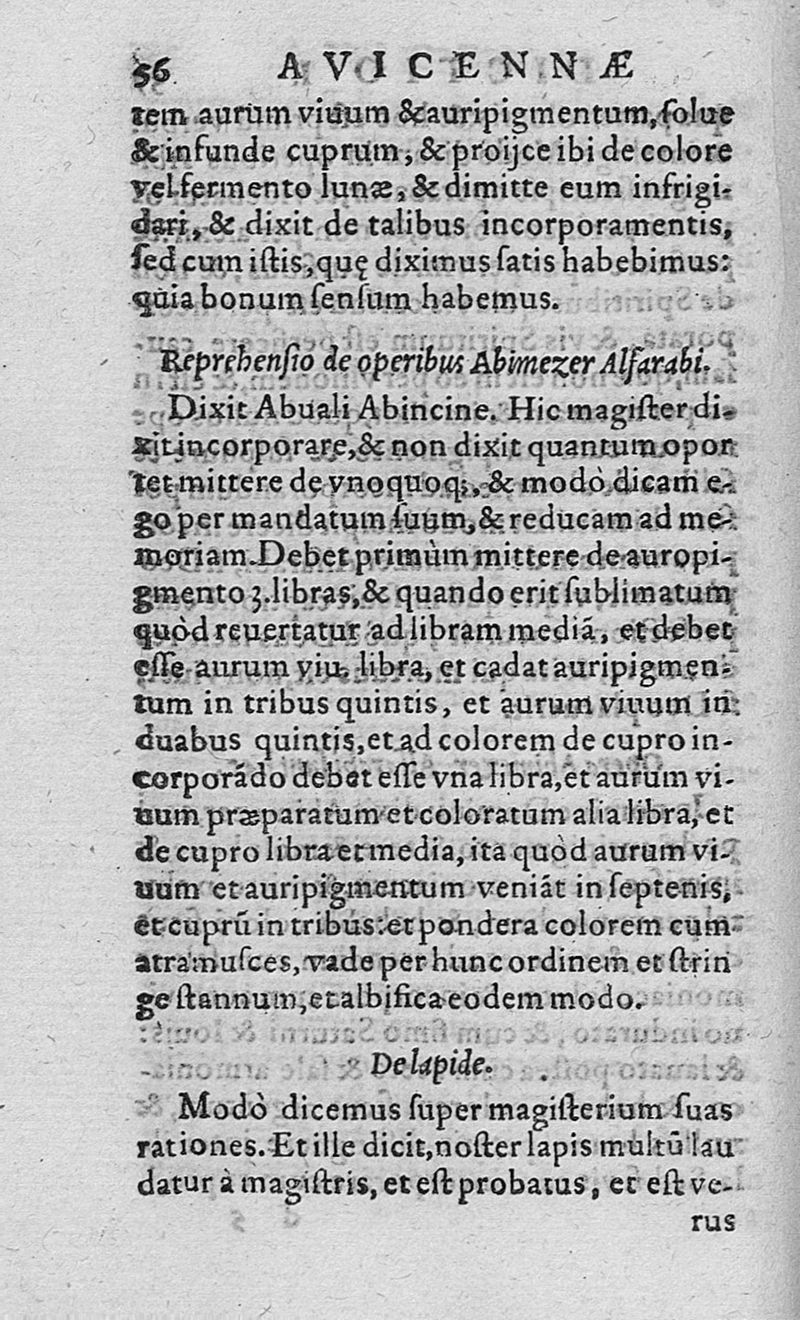 56 AVICENNÆ
tem aurum viuum & auripigmentum, ſolue
& infunde cuprum, & proijce ibi de colore
vel fermento lunæ, & dimitte eum infrigi-
dari, & dixit de talibus incorporamentis,
ſed cum iſtis, quę diximus ſatis habebimus:
quia bonum ſenſum habemus.
Reprehenſio de operibus Abimezer Alfarabi.
Dixit Abuali Abincine. Hic magiſter di-
xit incorporare, & non dixit quantum opor
tet mittere de vnoquoq;, & modò dicam e-
go per mandatum ſuum, & reducam ad me-
moriam. Debet primùm mittere de auropi-
gmento 3. libras, & quando erit ſublimatum
quòd reuertatur ad libram mediā, et debet
eſſe aurum viu. libra, et cadat auripigmen-
tum in tribus quintis, et aurum viuum in
duabus quintis, et ad colorem de cupro in-
corporādo debet eſſe vna libra, et aurum vi-
uum præparatum et coloratum alia libra, et
de cupro libra et media, ita quòd aurum vi-
uum et auripigmentum veniāt in ſeptenis,
et cuprū in tribus: et pondera colorem cum
atramuſces, vade per hunc ordinem et ſtrin
ge ſtannum, et albifica eodem modo.
De lapide.
Modò dicemus ſuper magiſterium ſuas
rationes. Et ille dicit, noſter lapis multū lau
datur à magiſtris, et eſt probatus, et eſt ve-
rus